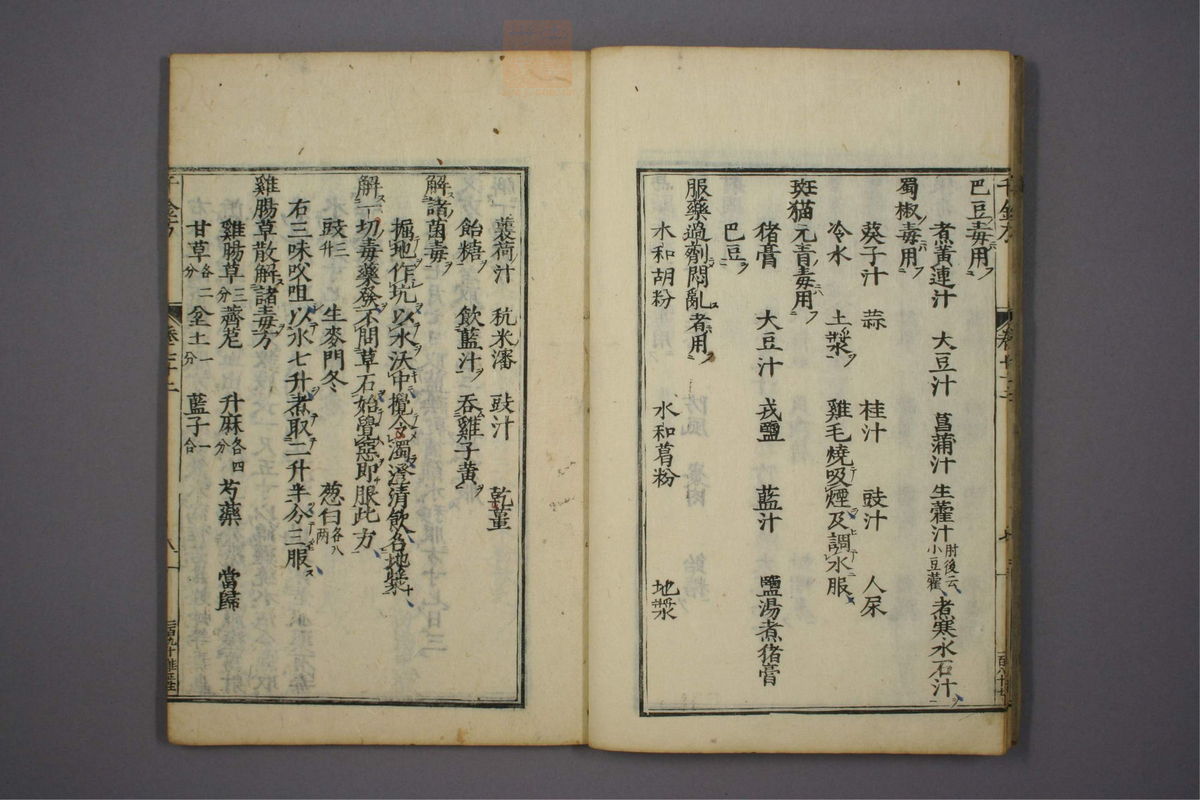 巴豆毒用
煮黃連汁 大豆汁 菖蒲汁 生藿汁 肘後云小豆藿 煮寒水石汁
蜀椒毒用
葵子汁 蒜 桂汁 豉汁 人尿
冷水 土漿 雞毛燒吸煙及調水服
斑猫元青毒用
猪膏 大豆汁 戎鹽 藍汁 鹽湯煮猪膏
巴豆
服藥過劑悶亂者用
水和胡粉 水和葛粉 地漿
蘘荷汁 秔米瀋 豉汁 乾薑
飴糖 飲藍汁 吞雞子黃
解諸菌毒
掘地作坑以水沃中攪令濁澄清飲名地漿
解一切毒藥發不問草石始覺惡即服此方
豉三升 生麥門冬 葱白各八兩
右三味㕮咀以水七升煮取二升半分三服
雞腸草散解諸毒方
雞腸草三分 薺苨 升麻各四分 芍藥 當歸
甘草各二分 坌土一分 藍子一合